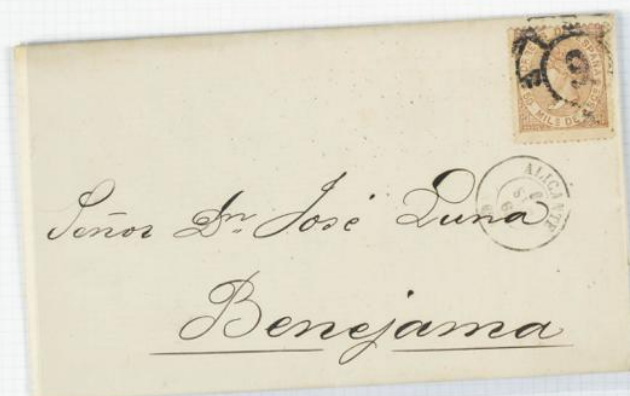 ESPAÑA
50 MILS DE ESCO
ALICANTE
Señor Dn. José Luna
Benejama